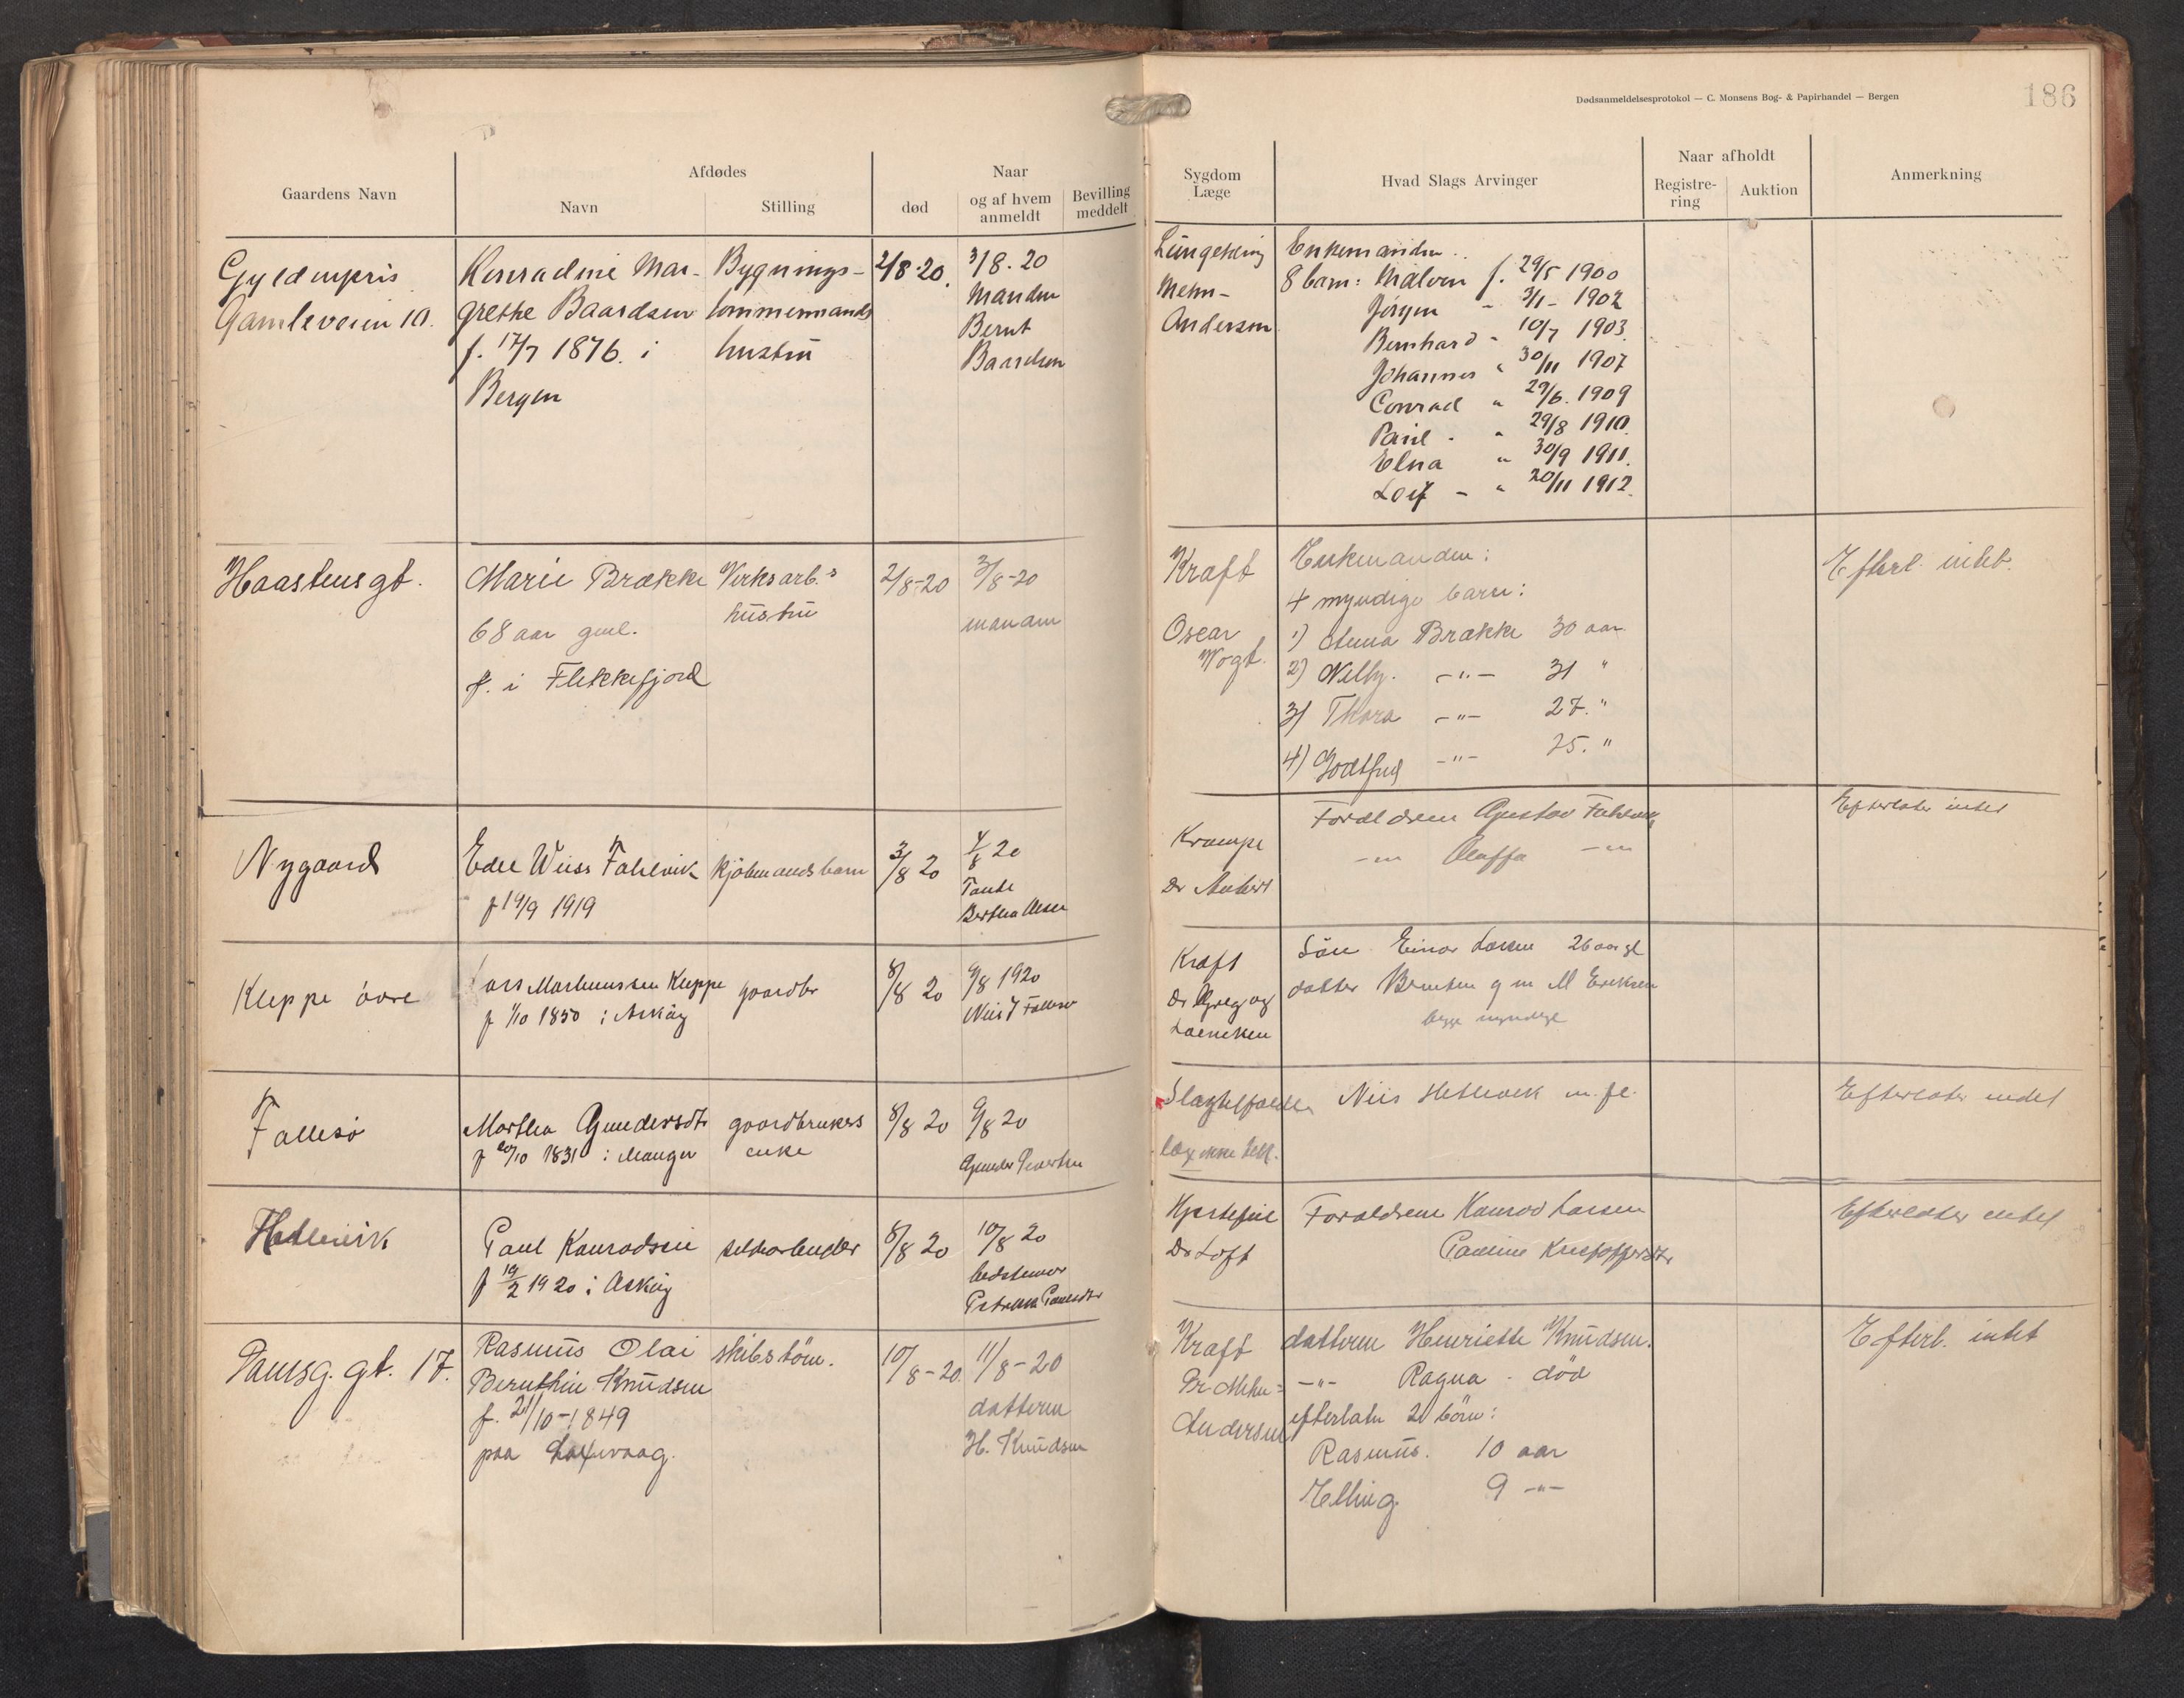 Dødsanmeldelsesprotokol — C. Monsens Bog- & Papirhandel — Bergen
186
Gaardens Navn
Afdødes
Navn
Stilling
død
Naar
og af hvem anmeldt
Bevilling meddelt
Sygdom
Læge
Hvad Slags Arvinger
Naar afholdt
Registre-
ring
Auktion
Anmerkning
Gyldenpris
Gamleveien 10.
Konradine Mar-
grethe Baardsen
f. 17/7 1876. i
Bergen
Bygnings-
tømmermands
hustru
2/8-20.
3/8. 20
Manden
Bernt
Baardsen
Mehn-
Andersen
Enkemanden
8 barn: Malvin f. 29/5 1900
Jørgen " 3/1- 1902
Bernhard - 10/7 1903.
Johannes " 30/11 1907
Conrad " 29/6. 1909
Paul - " 29/8 1910.
Elna " 30/9 1911.
Leif - " 20/11 1912.
Haasteinsgt.
Marie Brække
68 aar gml.
f. i Flekkefjord
Verksarb.s
hustru
2/8-20
3/8-20
manden
Kraft
Oscar
Vogt.
Enkemanden:
4 myndige barn:
1) Anna Brække 30 aar
2) Nelly. -"- 31 "
3) Thora -"- 27. "
4) Godtfred -"- 25. "
Efterl. intet.
Nygaard
Edel Weiss Fahlvik
f 19/9 1919
kjøbmandsbarn
3/8 20
4/8 20
Tante
Bertha Olsen
Krampe
Dr
Forældrene Gustav Fahlvik
-"- Olaffa -"-
Efterlater intet
Kleppe øvre
Lars Mortenssen Kleppe
f 1/10 1850 i Askøy
gaardbr
8/8 20
9/8 1920
Nils J Follesø
Kraft
Dr Greg og
Søn Einar Larsen 26 aar gl
datter Berntine g m M Eriksen
begge myndige
Follesø
Martha Gundersdtr
f 20/10 1831 i Manger
gaardbrukers
enke
8/8 20
9/8 20
Slagtilfælde
læge ikke tilk.
Nils Hetlevik m. fl.
Efterlater intet
Hetlevik
Paul Konradsen
f 19/2 1920 i Askøy
8/8 20
10/8 20
bedstemor
Hjertefeil
Dr Loft
Forældrene Konrad Larsen
Pauline Kristoffersdtr
Efterlater intet
Damsg. gt. 17.
Rasmus Olai
Bernthin Knudsen
f. 21/10-1849
paa Laxevaag.
skibstøm.
10/8-20.
11/8-20
datteren
H. Knudsen
Kraft
Dr Mehn-
Andersen
datteren Henriette Knudsen.
-"- Ragna - død
efterlatn 2 børn:
Rasmus. 10 aar
Elling. 9 -"-
Efterl. intet